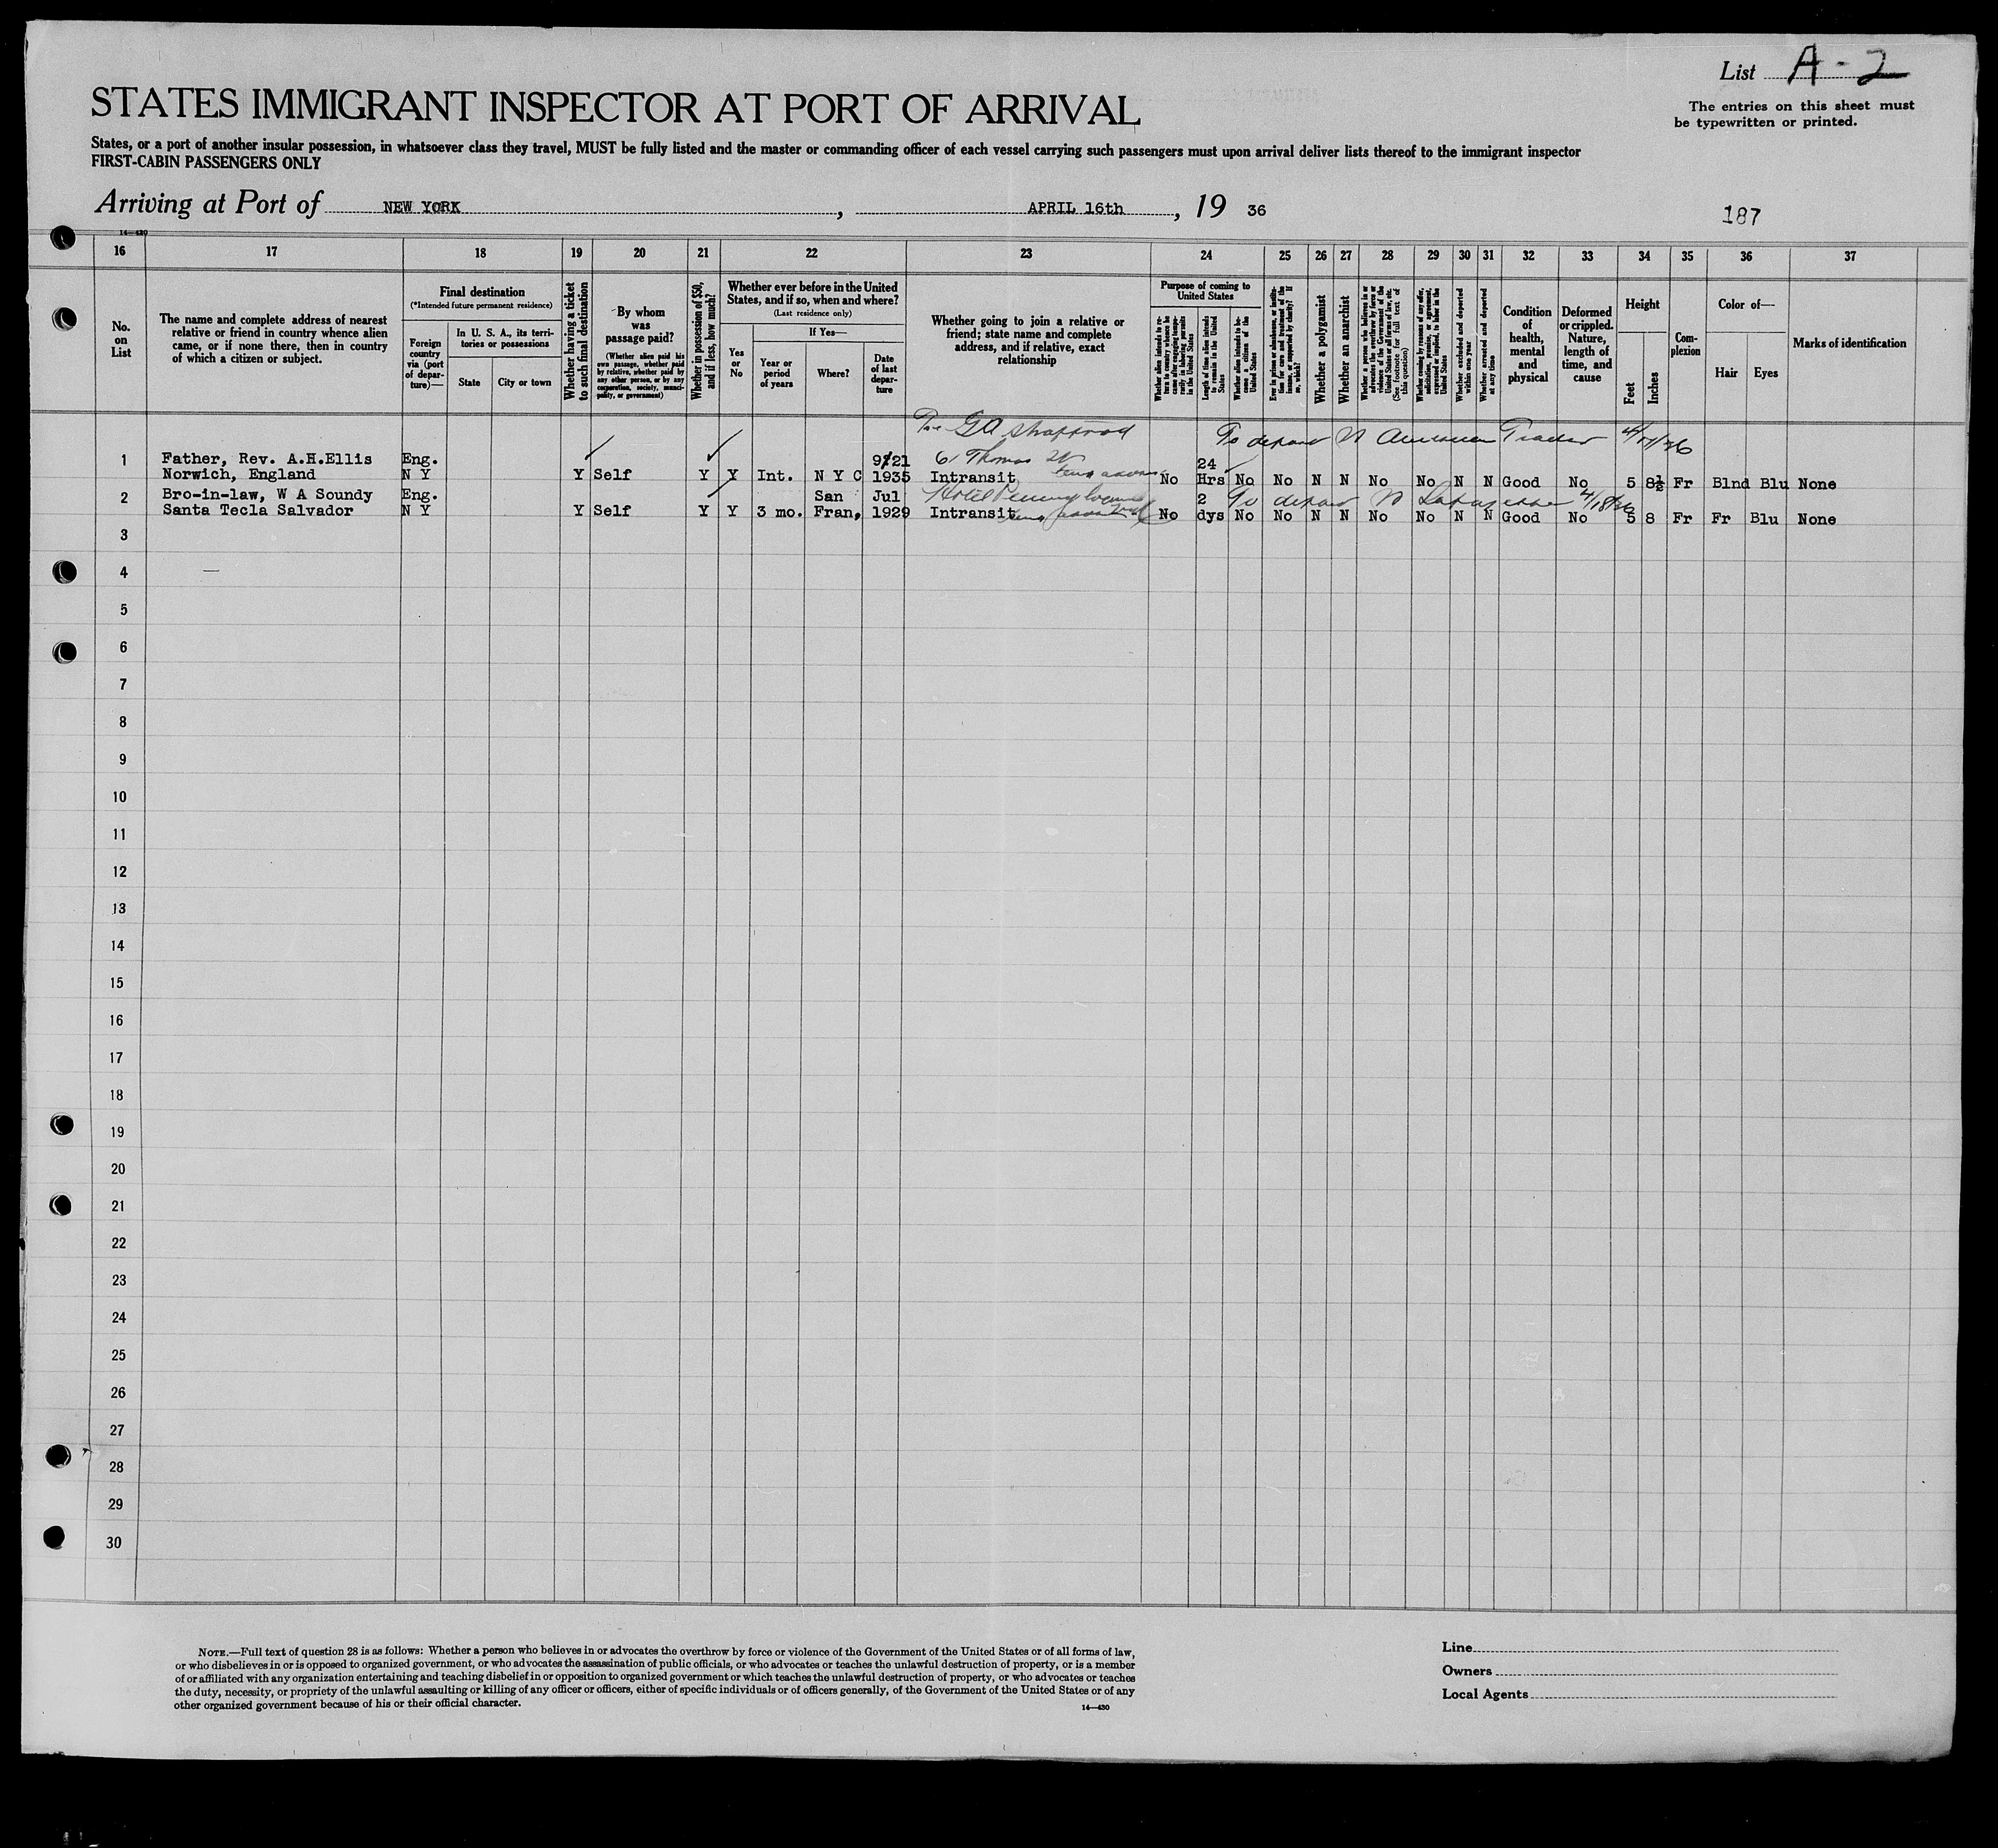 List A-2
STATES IMMIGRANT INSPECTOR AT PORT OF ARRIVAL
The entries on this sheet must
be typewritten or printed.
States, or a port of another insular possession, in whatsoever class they travel, MUST be fully listed and the master or commanding officer of each vessel carrying such passengers must upon arrival deliver lists thereof to the immigrant inspector
FIRST-CABIN PASSENGERS ONLY
Arriving at Port of NEW YORK, APRIL 16th, 19 36
187
14—430
16 17 18 19 20 21 22 23 24 25 26 27 28 29 30 31 32 33 34 35 36 37
No.
on
List
The name and complete address of nearest
relative or friend in country whence alien
came, or if none there, then in country
of which a citizen or subject.
Final destination
(*Intended future permanent residence)
Foreign
country
via (port
of depar-
ture)—
In U. S. A., its terri-
tories or possessions
State
City or town
Whether having a ticket
to such final destination
By whom
was
passage paid?
(Whether alien paid his
own passage, whether paid
by relative, whether paid by
any other person, or by any
corporation, society, munici-
pality, or government)
Whether in possession of $50,
and if less, how much?
Whether ever before in the United
States, and if so, when and where?
(Last residence only)
Yes
or
No
If Yes—
Year or
period
of years
Where?
Date
of last
depar-
ture
Whether going to join a relative or
friend; state name and complete
address, and if relative, exact
relationship
Purpose of coming to
United States
Whether alien intends to re-
turn to country whence he
came after engaging tempo-
rarily in laboring pursuits
in the United States
Length of time alien intends
to remain in the United
States
Whether alien intends to be-
come a citizen of the
United States
Ever in prison or almshouse, or institu-
tion for care and treatment of the
insane, or supported by charity? If
so, which?
Whether a polygamist
Whether an anarchist
Whether a person who believes in or
advocates the overthrow by force or
violence of the Government of the
United States or all forms of law, etc.
(See footnote for full text of
this question)
Whether coming by reason of any offer,
solicitation, promise, or agreement,
expressed or implied, to labor in the
United States
Whether excluded and deported
within one year
Whether arrested and deported
at any time
Condition
of
health,
mental
and
physical
Deformed
or crippled.
Nature,
length of
time, and
cause
Height
Feet
Inches
Com-
plexion
Color of—
Hair
Eyes
Marks of identification
To depart American Trader 4/17/36
1 Father, Rev. A.H.Ellis Eng. 9/21 61 Thomas 24
Norwich, England N Y Y Self Y Y Int. N Y C 1935 Intransit No Hrs No No N N No No N N Good No 5 8½ Fr Blnd Blu None
2 Bro-in-law, W A Soundy Eng. San Jul Hotel Pennsylvania 2 To depart Lafayette 4/18/36
Santa Tecla Salvador N Y Y Self Y Y 3 mo. Fran, 1929 Intransit No dys No No N N No No N N Good No 5 8 Fr Fr Blu None
3
4
5
6
7
8
9
10
11
12
13
14
15
16
17
18
19
20
21
22
23
24
25
26
27
28
29
30
NOTE.—Full text of question 28 is as follows: Whether a person who believes in or advocates the overthrow by force or violence of the Government of the United States or of all forms of law,
or who disbelieves in or is opposed to organized government, or who advocates the assassination of public officials, or who advocates or teaches the unlawful destruction of property, or is a member
of or affiliated with any organization entertaining and teaching disbelief in or opposition to organized government or which teaches the unlawful destruction of property, or who advocates or teaches
the duty, necessity, or propriety of the unlawful assaulting or killing of any officer or officers, either of specific individuals or of officers generally, of the Government of the United States or of any
other organized government because of his or their official character.
14—430
Line
Owners
Local Agents